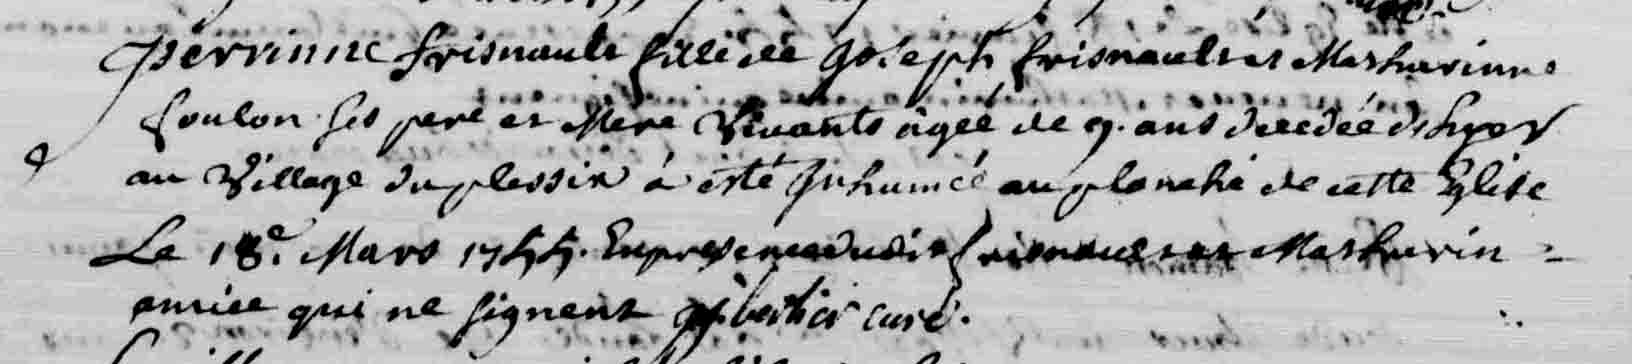 perrinne frisnault fille de Joseph frisnault et Mathurinne
foulon ses pere et Mere vivants âgée de 9. ans decedée d'hyer
au Village du plessix à esté Inhumée au planché de cette Eglise
Le 18e. Mars 1755. En presence dudit frisnault et Mathurin
qui ne signent curé.